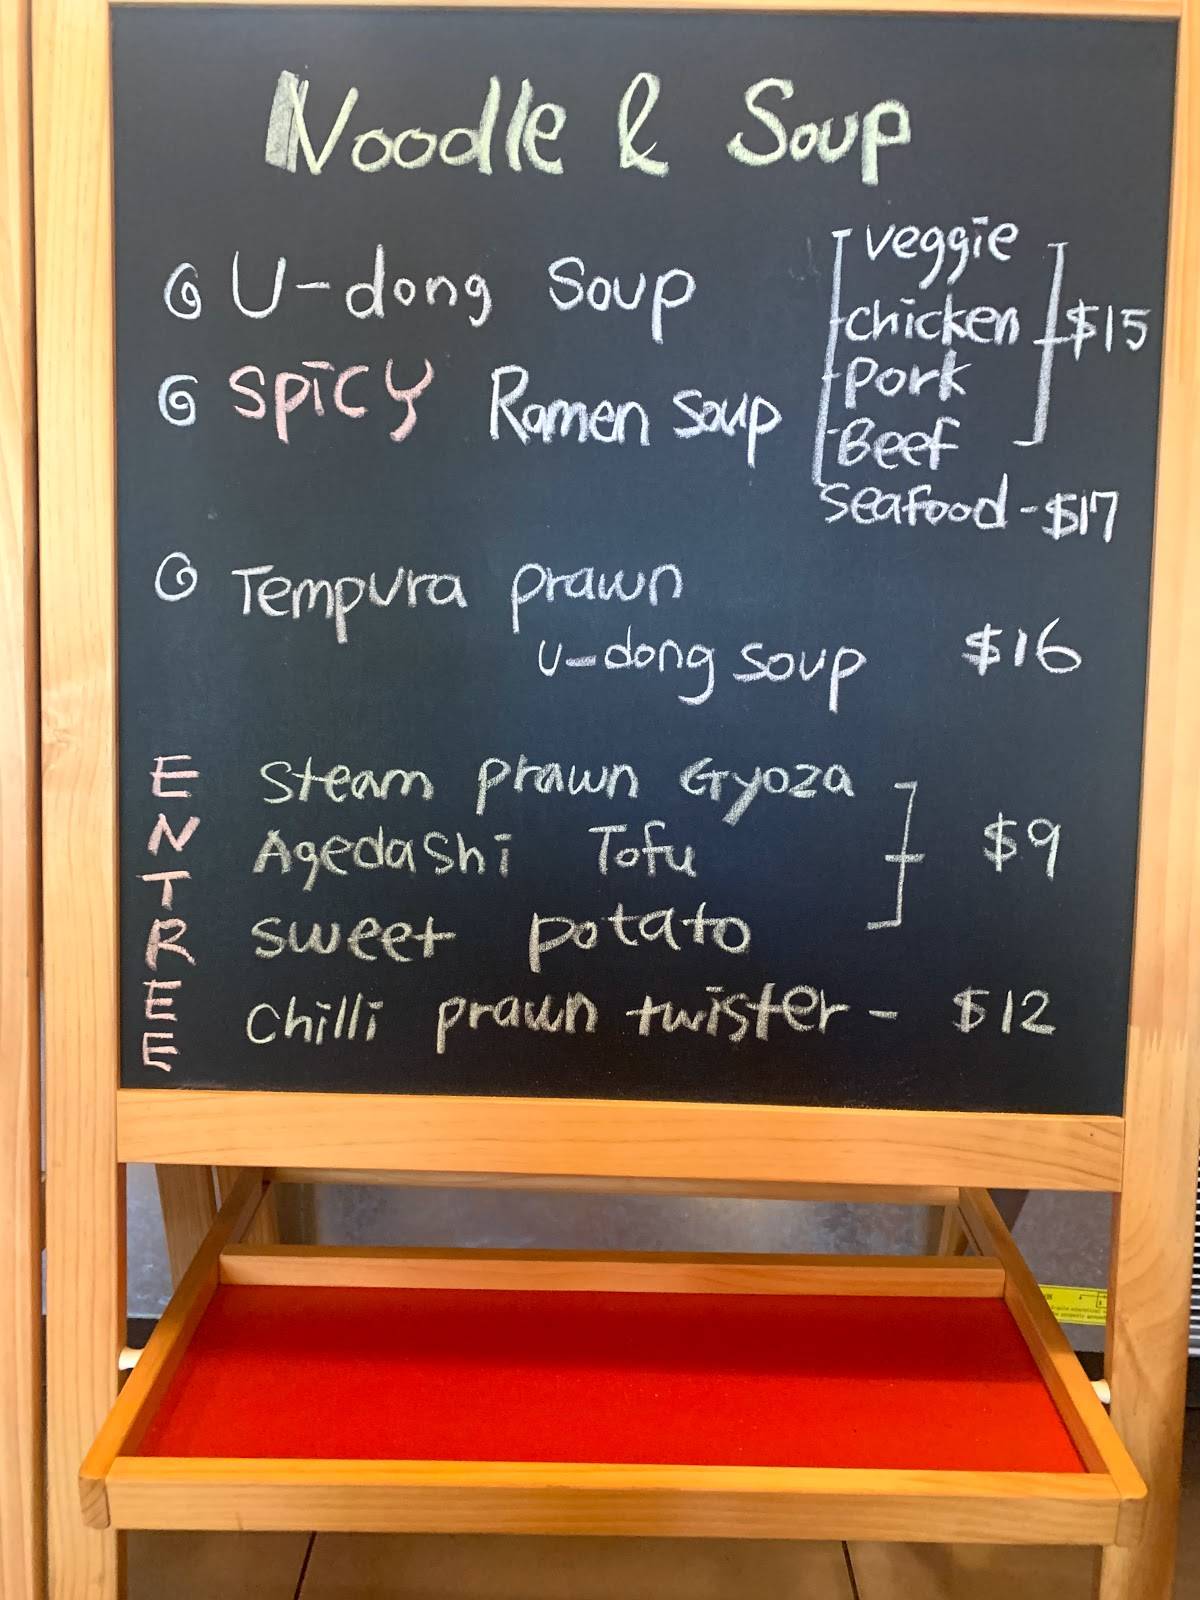 Noodle & Soup
U-dong Soup
SPICY Ramen Soup
veggie
chicken
Pork
Beef
$15
Seafood - $17
Tempura prawn
U-dong soup $16
ENTREE
Steam prawn Gyoza
Agedashi Tofu
$9
Sweet potato
Chilli prawn twister - $12